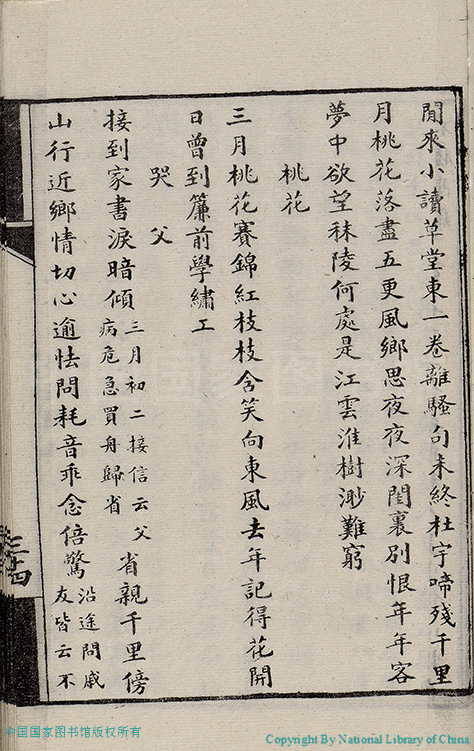 閒來小讀草堂東一卷離騷句未終杜宇啼殘千里
月桃花落盡五更風鄉思夜夜深閨裏別恨年年客
夢中欲望秣陵何處是江雲淮樹渺難窮
桃花
三月桃花賽錦紅枝枝含笑向東風去年記得花開
日曾到簾前學繡工
哭父
接到家書淚暗傾三月初二接信云父病危急買舟歸省省親千里傍
山行近鄉情切心逾怯問耗音乖念倍驚沿途問戚友皆云不
三十四
中国国家图书馆版权所有
Copyright By National Library of China